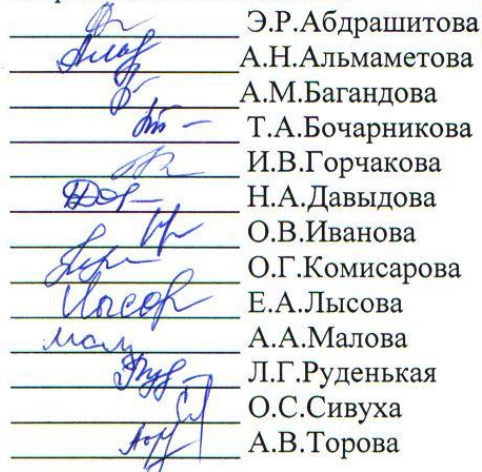 Э.Р.Абдрашитова
А.Н.Альмаметова
А.М.Багандова
Т.А.Бочарникова
И.В.Горчакова
Н.А.Давыдова
О.В.Иванова
О.Г.Комисарова
Е.А.Лысова
А.А.Малова
Л.Г.Руденькая
О.С.Сивуха
А.В.Торова